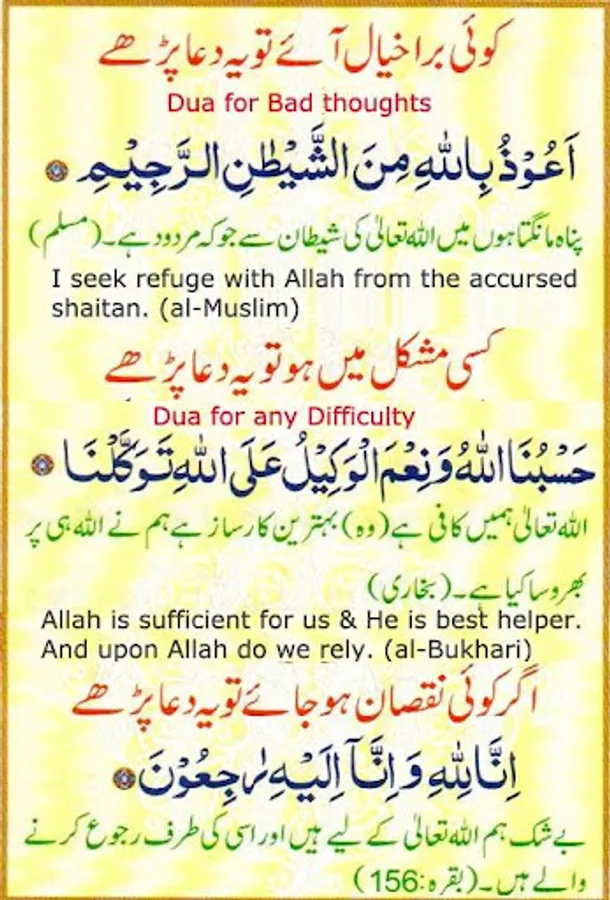 کوئی برا خیال آئے تو یہ دعا پڑھے
Dua for Bad thoughts
اَعُوْذُ بِاللّٰهِ مِنَ الشَّيْطٰنِ الرَّجِيْمِ
پناہ مانگتا ہوں میں اللہ تعالیٰ کی شیطان سے جو کہ مردود ہے۔ (مسلم)
I seek refuge with Allah from the accursed
shaitan. (al-Muslim)
کسی مشکل میں ہو تو یہ دعا پڑھے
Dua for any Difficulty
حَسْبُنَا اللّٰهُ وَنِعْمَ الْوَكِيْلُ عَلَى اللّٰهِ تَوَكَّلْنَا
اللہ تعالیٰ ہمیں کافی ہے (وہ) بہترین کارساز ہے ہم نے اللہ ہی پر
بھروسا کیا ہے۔ (بخاری)
Allah is sufficient for us & He is best helper.
And upon Allah do we rely. (al-Bukhari)
اگر کوئی نقصان ہو جائے تو یہ دعا پڑھے
اِنَّا لِلّٰهِ وَاِنَّآ اِلَيْهِ رٰجِعُوْنَ
بے شک ہم اللہ تعالیٰ کے لیے ہیں اور اسی کی طرف رجوع کرنے
والے ہیں۔ (بقرہ:156)